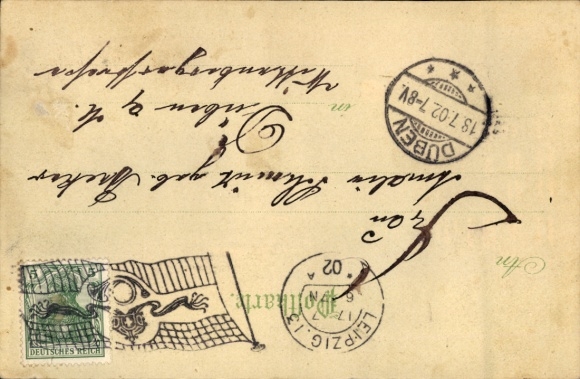 Postkarte
An
Frau
Amalie Schmidt geb. Becker
in Düben a. M.
Wittenbergerstrasse
DÜBEN
18.7.02.7-8V.
LEIPZIG.13
17.7
02
DEUTSCHES REICH